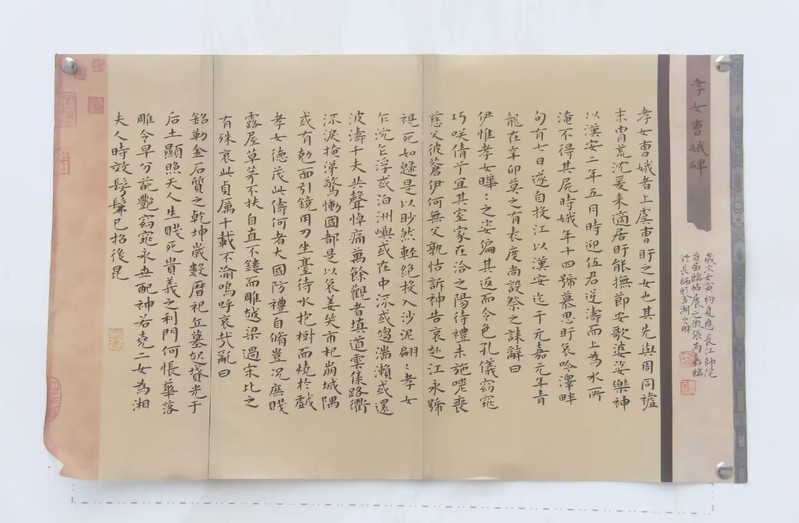 孝女曹娥碑
首屆臨帖展之徵張
孝女曹娥者上虞曹盱之女也其先與周同祖
末胄荒沈爰來適居盱能撫節安歌婆娑樂神
以漢安二年五月時迎伍君逆濤而上為水所
淹不得其屍時娥年十四號慕思盱哀吟澤畔
旬有七日遂自投江以漢安迄于元嘉元年青
龍在辛卯莫之有表度尚設祭之誄辭曰
伊惟孝女曄〻之姿偏其返而令色孔儀窈窕
巧咲倩兮宜其室家在洽之陽待禮未施嗟喪
慈父彼蒼伊何無父孰怙訴神告哀赴江永號
視死如歸是以眇然輕絕投入沙泥翩〻孝女
乍沉乍浮或泊洲嶼或在中流或趨湍瀨或還
波濤千夫共聲悼痛萬餘觀者填道雲集路衢
流淚掩涕驚慟國都是以哀姜哭市杞崩城隅
或有勉面引鏡用刀坐臺待水抱樹而燒於戲
孝女德茂此儔何者大國防禮自脩豈況庶賤
露屋草茅不扶自直不鏤而雕越梁過宋比之
有殊哀此貞厲千載不渝嗚呼哀哉亂曰
銘勒金石質之乾坤歲數曆祀丘墓起墳光于
后土顯照天人生賤死貴義之利門何悵華落
雕令早分葩艷窈窕永世配神若堯二女為湘
夫人時效髣髴以招後昆